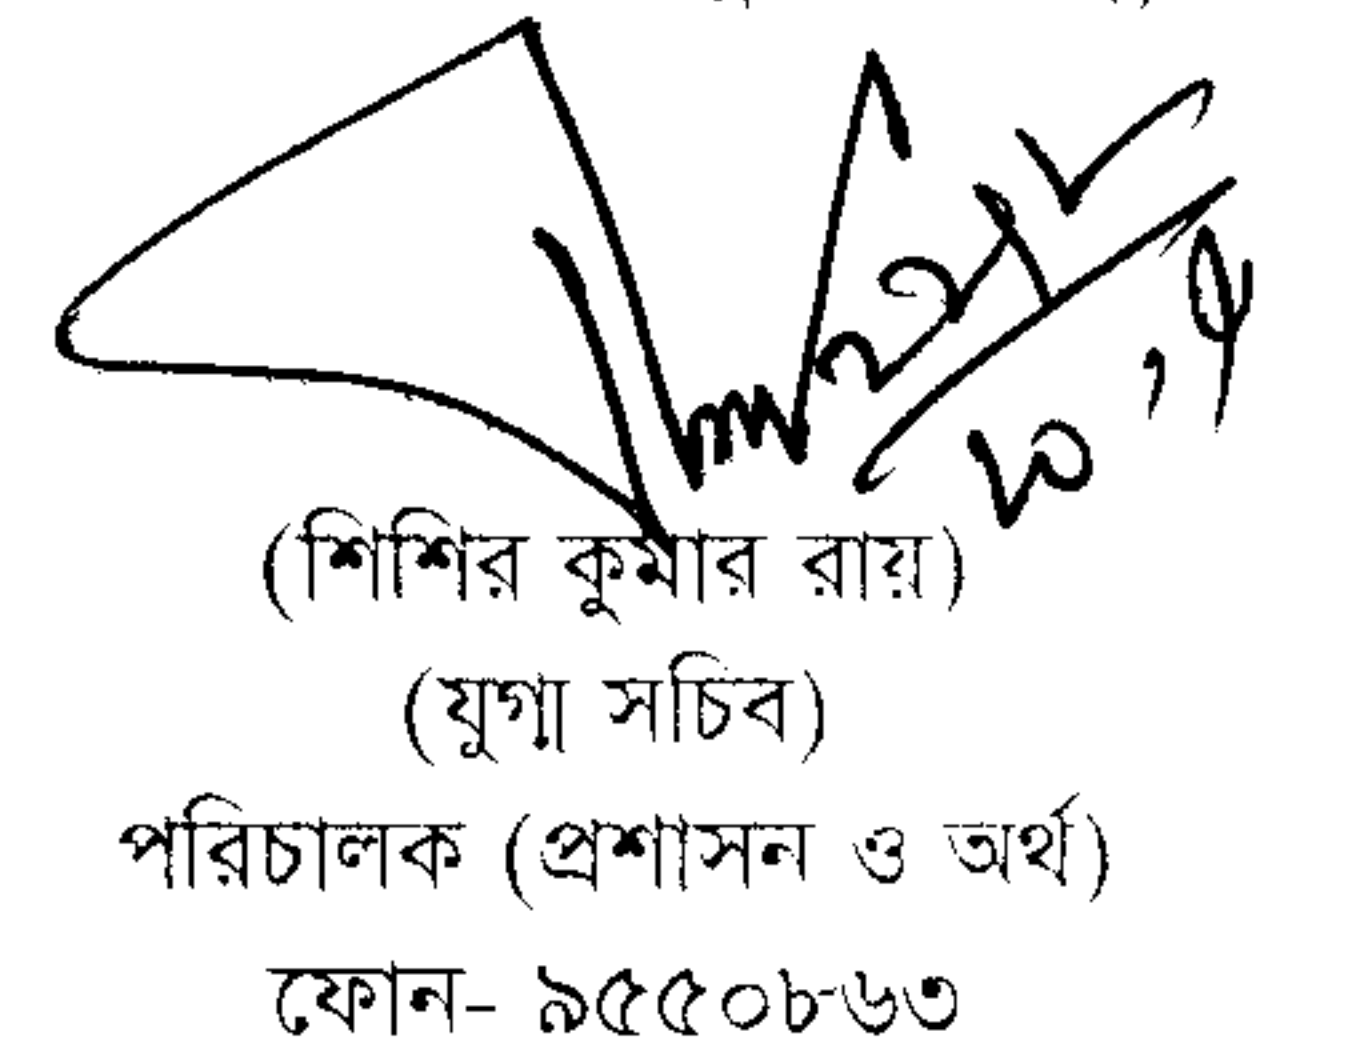 (শিশির কুমার রায়)
(যুগ্ম সচিব)
পরিচালক (প্রশাসন ও অর্থ)
ফোন- ৯৫৫০৮৬৩